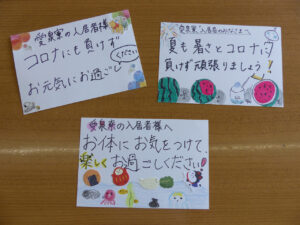 愛泉寮の入居者様
コロナにも負けず
お元気にお過ごし
ください
愛泉寮入居者のみなさまへ
夏も暑さとコロナに
負けず頑張りましょう!
愛泉寮の入居者様へ
お体にお気をつけて
楽しくお過ごしください!